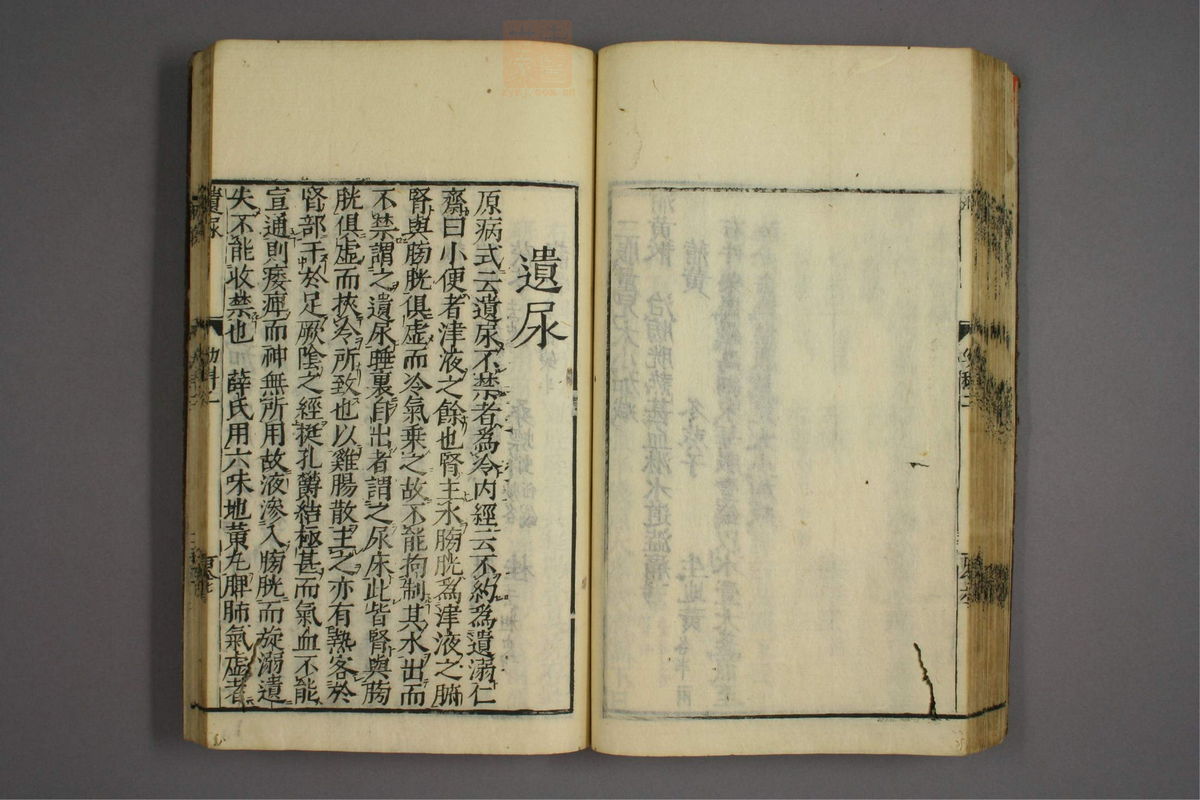 遺尿
原病式云遺尿不禁者為冷内經云不約為遺溺仁
齋曰小便者津液之餘也腎主水膀胱為津液之腑
腎與膀胱俱虛而冷氣乘之故不能拘制其水出而
不禁謂之遺尿睡裏自出者謂之尿床此皆腎與膀
胱俱虛而挾冷所致也以雞腸散主之亦有熱客於
腎部干於足厥陰之經挺孔欝結極甚而氣血不能
宣通則痿痺而神無所用故液滲入膀胱而旋溺遺
失不能收禁也 薛氏用六味地黃丸脾肺氣虛者
遺尿 幼科二